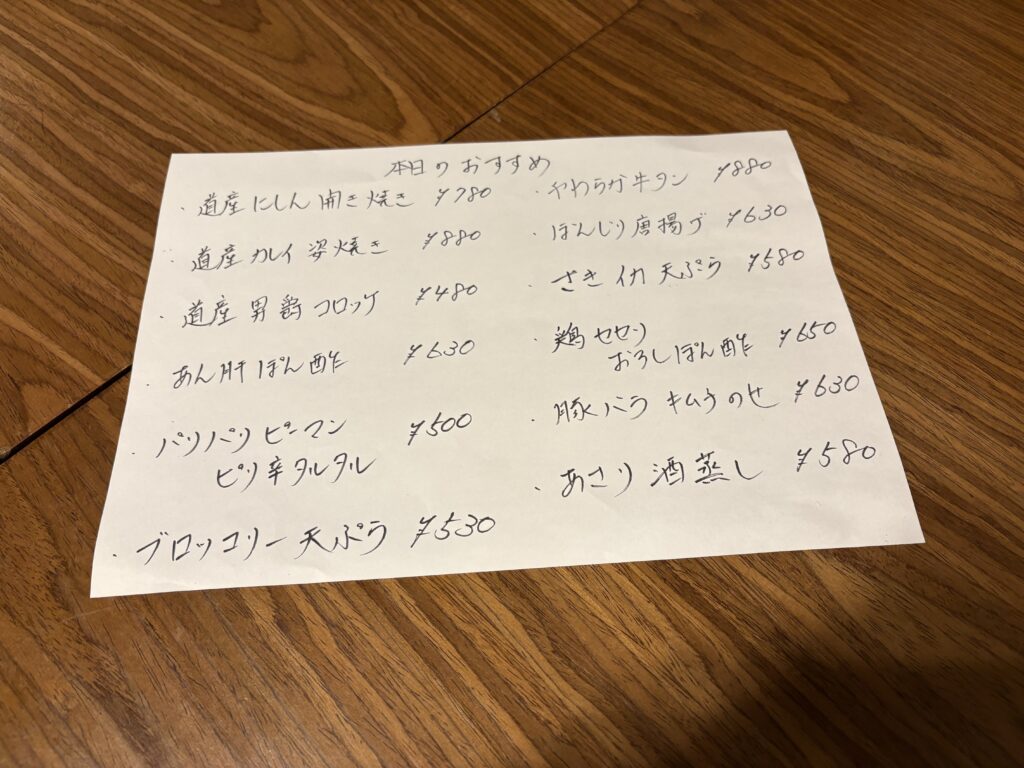 本日のおすすめ
・道産にしん開き焼き ¥780
・道産カレイ姿焼き ¥880
・道産男爵コロッケ ¥480
・あん肝ぽん酢 ¥630
・パリパリピーマン ¥500
ピリ辛タルタル
・ブロッコリー天ぷら ¥530
・やわらか牛タン ¥880
・ぼんじり唐揚げ ¥630
・さきイカ天ぷら ¥580
・鶏セセリ
おろしぽん酢 ¥650
・豚バラキムチのせ ¥630
・あさり酒蒸し ¥580